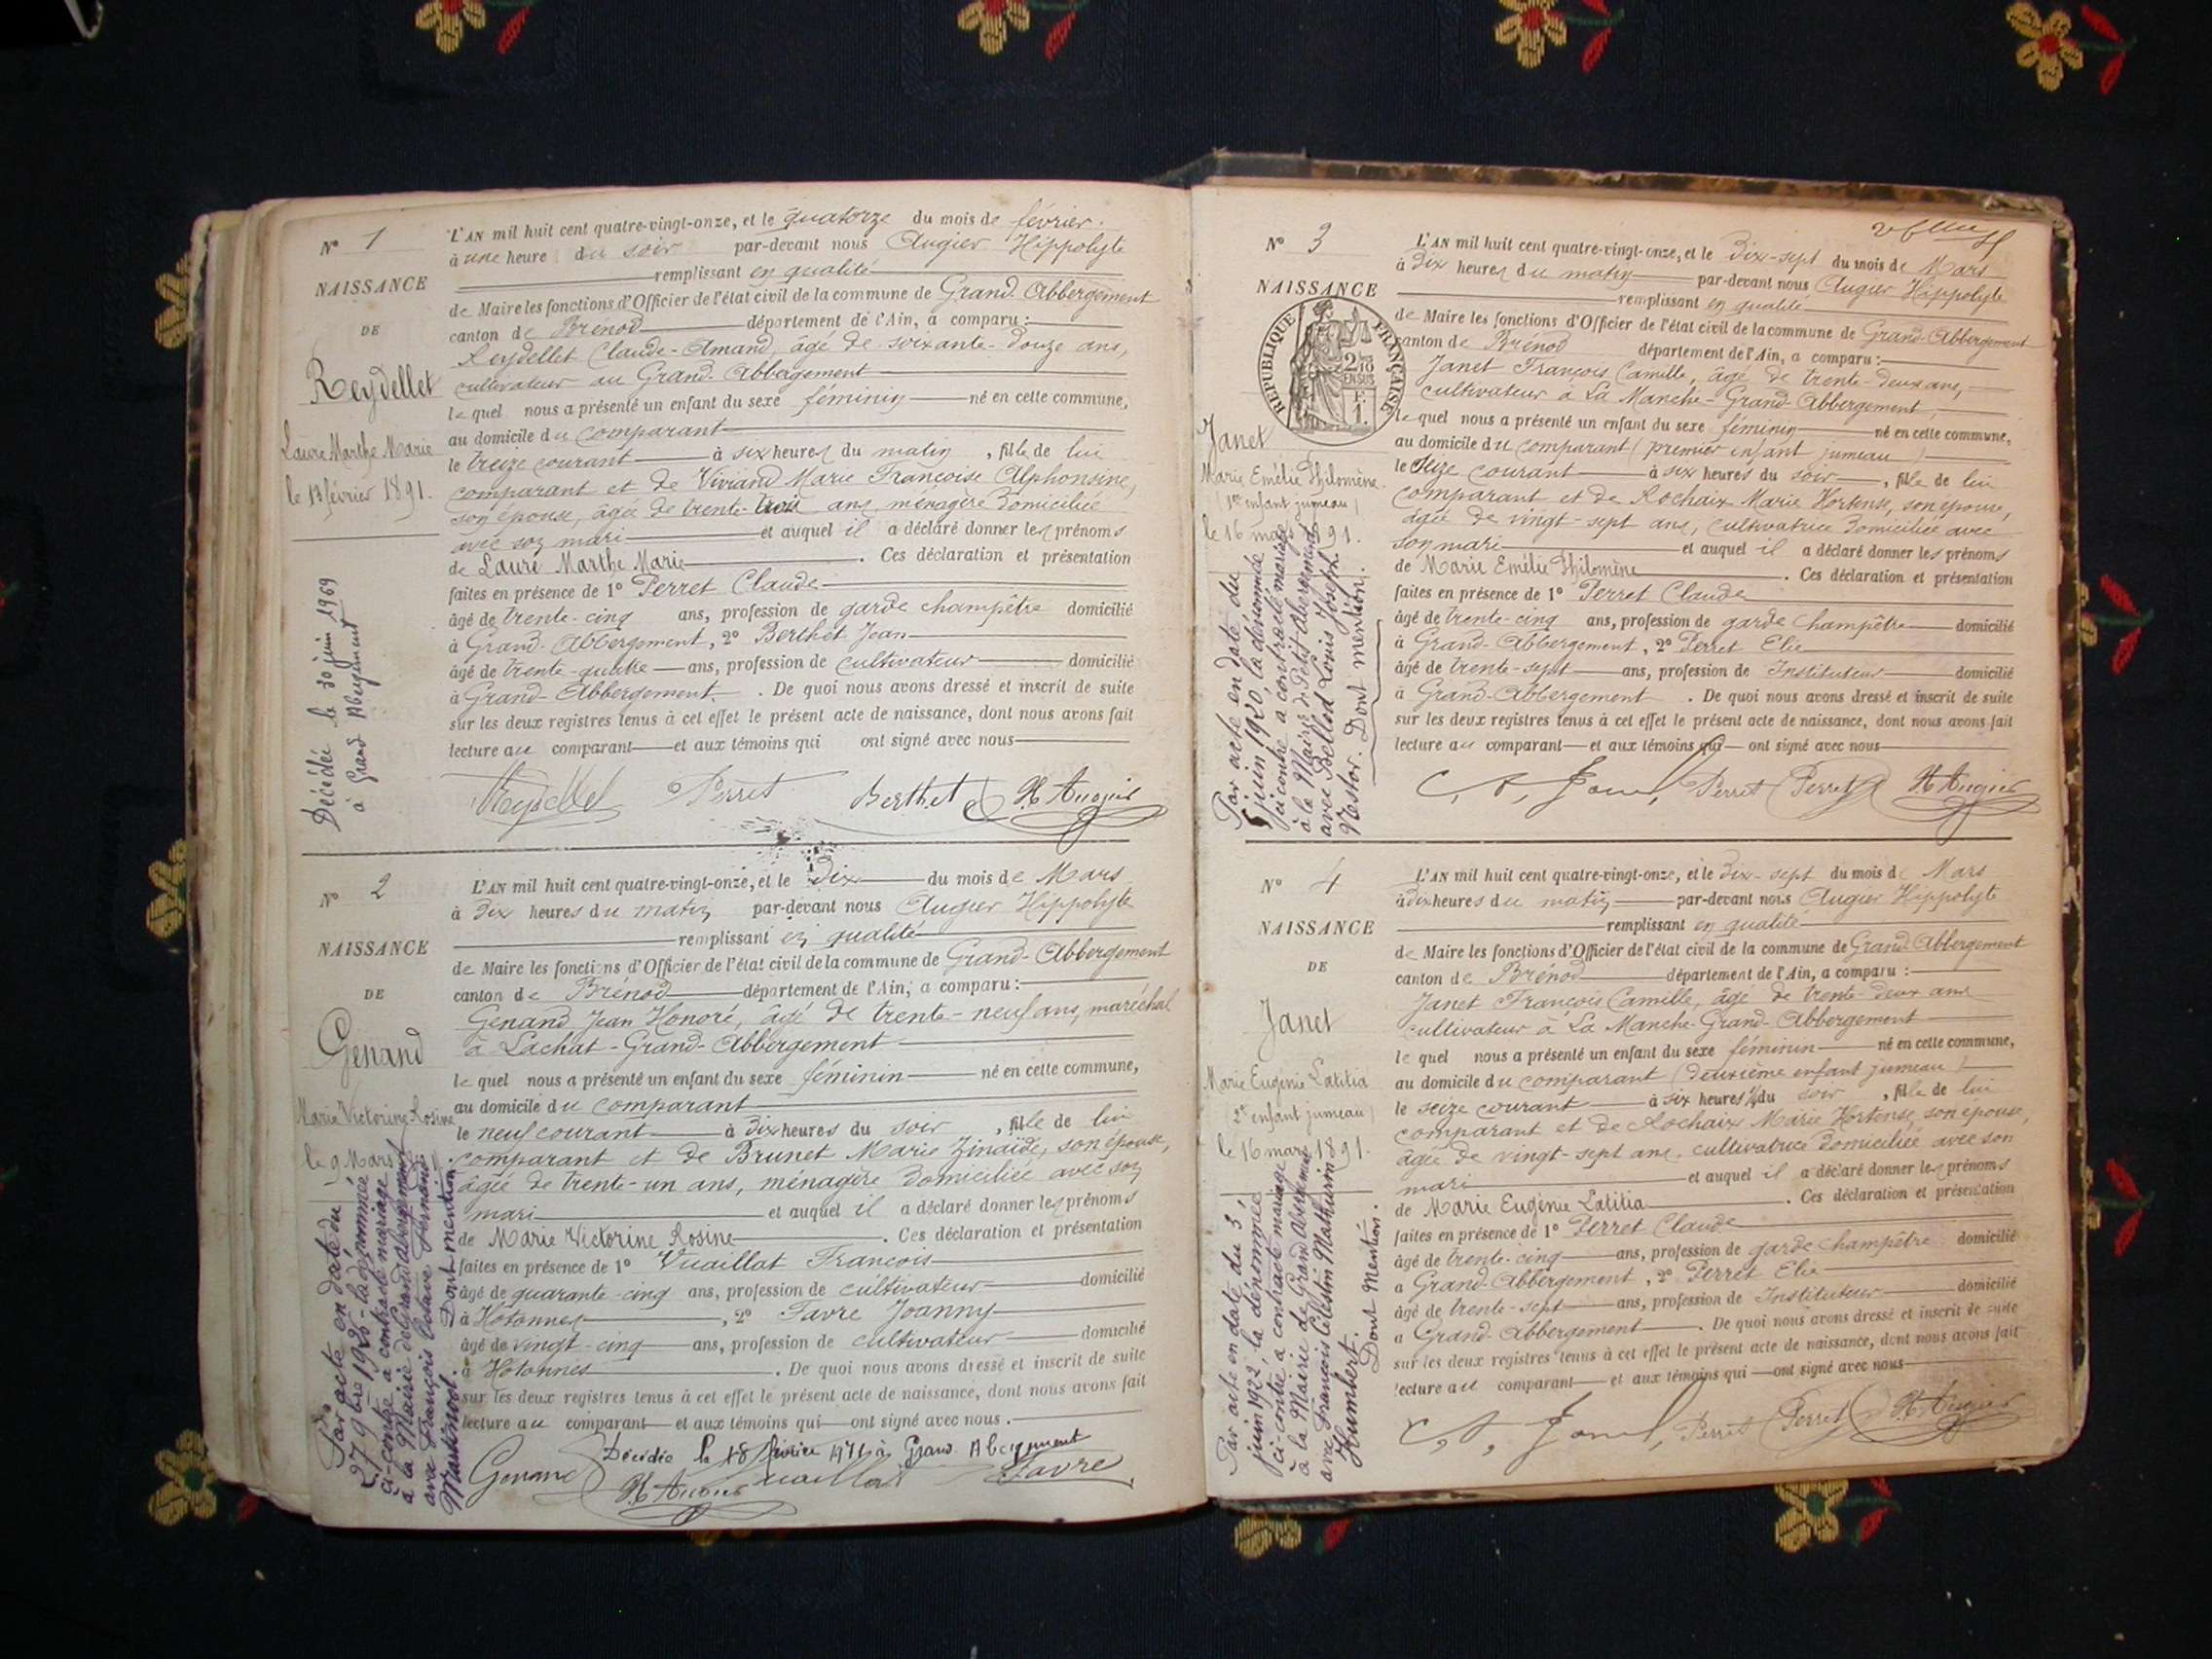 N° 1
NAISSANCE
DE
Reydellet
Laure Marthe Marie
le 13 février 1891.
Décédée le 30 juin 1969
à Grand Abergement
L'AN mil huit cent quatre-vingt-onze, et le quatorze du mois de février.
à une heure du soir par-devant nous Augier Hippolyte
remplissant en qualité
de Maire les fonctions d'Officier de l'état civil de la commune de Grand-Abbergement
canton de Brénod département de l'Ain, a comparu :
Reydellet Claude-Amand, âgé de soixante-douze ans,
cultivateur au Grand-Abbergement
lequel nous a présenté un enfant du sexe féminin né en cette commune,
au domicile du comparant
le treize courant à six heures du matin, fille de lui
comparant et de Viviand Marie Françoise Alphonsine,
son épouse, âgée de trente-trois ans, ménagère domiciliée
avec son mari et auquel il a déclaré donner les prénoms
de Laure Marthe Marie. Ces déclaration et présentation
faites en présence de 1° Perret Claude
âgé de trente-cinq ans, profession de garde champêtre domicilié
à Grand-Abbergement, 2° Berthet Jean
âgé de trente-quatre ans, profession de cultivateur domicilié
à Grand-Abbergement. De quoi nous avons dressé et inscrit de suite
sur les deux registres tenus à cet effet le présent acte de naissance, dont nous avons fait
lecture au comparant et aux témoins qui ont signé avec nous
Reydellet Perret Berthet H Augier
N° 2
NAISSANCE
DE
Genand
Marie Victorine Rosine
le 9 Mars
Par acte en date du
27 9bre 1920, la dénommée
ci-contre a contracté mariage
à la Mairie de Grand Abergement
avec François Octave Fernand
Martinod. Dont mention
L'AN mil huit cent quatre-vingt-onze, et le dix du mois de Mars
à dix heures du matin par-devant nous Augier Hippolyte
remplissant en qualité
de Maire les fonctions d'Officier de l'état civil de la commune de Grand-Abbergement
canton de Brénod département de l'Ain, a comparu :
Genand Jean Honoré, âgé de trente-neuf ans, maréchal
à Lachat-Grand-Abbergement
lequel nous a présenté un enfant du sexe féminin né en cette commune,
au domicile du comparant
le neuf courant à dix heures du soir, fille de lui
comparant et de Brunet Marie Zinaïde, son épouse,
âgée de trente-un ans, ménagère domiciliée avec son
mari et auquel il a déclaré donner les prénoms
de Marie Victorine Rosine. Ces déclaration et présentation
faites en présence de 1° Vuaillat François
âgé de quarante-cinq ans, profession de cultivateur domicilié
à Hotonnes, 2° Favre Joanny
âgé de vingt-cinq ans, profession de cultivateur domicilié
à Hotonnes. De quoi nous avons dressé et inscrit de suite
sur les deux registres tenus à cet effet le présent acte de naissance, dont nous avons fait
lecture au comparant et aux témoins qui ont signé avec nous.
Décédée le 18 février 1971 à Grand Abergement
Genand H Augier Vuaillat Favre
N° 3
NAISSANCE
RÉPUBLIQUE FRANÇAISE
2/10 EN SUS
F. 1.
Janet
Marie Emélie Philomène
(1er enfant jumeau)
le 16 mars 1891.
Par acte en date du
5 juin 1920, la dénommée
ci-contre a contracté mariage
à la Mairie de Petit Abergement
avec Bellod Louis Joseph
Nestor. Dont mention.
L'AN mil huit cent quatre-vingt-onze, et le dix-sept du mois de Mars
à dix heures du matin par-devant nous Augier Hippolyte
remplissant en qualité
de Maire les fonctions d'Officier de l'état civil de la commune de Grand-Abbergement
canton de Brénod département de l'Ain, a comparu :
Janet François Camille, âgé de trente-deux ans,
cultivateur à La Manche-Grand-Abbergement,
lequel nous a présenté un enfant du sexe féminin né en cette commune,
au domicile du comparant (premier enfant jumeau)
le seize courant à six heures du soir, fille de lui
comparant et de Rochaix Marie Hortense, son épouse,
âgée de vingt-sept ans, cultivatrice domiciliée avec
son mari et auquel il a déclaré donner les prénoms
de Marie Emélie Philomène. Ces déclaration et présentation
faites en présence de 1° Perret Claude
âgé de trente-cinq ans, profession de garde champêtre domicilié
à Grand-Abbergement, 2° Perret Elie
âgé de trente-sept ans, profession de Instituteur domicilié
à Grand-Abbergement. De quoi nous avons dressé et inscrit de suite
sur les deux registres tenus à cet effet le présent acte de naissance, dont nous avons fait
lecture au comparant et aux témoins qui ont signé avec nous
Perret Perret H Augier
N° 4
NAISSANCE
DE
Janet
Marie Eugénie Latitia
2e enfant jumeau)
le 16 mars 1891.
Par acte en date du 3
juin 1922, la dénommée
ci-contre a contracté mariage
à la Mairie de Grand Abergement
avec François Célestin Mathurin
Humbert.
Dont Mention.
L'AN mil huit cent quatre-vingt-onze, et le dix-sept du mois de Mars
à dix heures du matin par-devant nous Augier Hippolyte
remplissant en qualité
de Maire les fonctions d'Officier de l'état civil de la commune de Grand-Abbergement
canton de Brénod département de l'Ain, a comparu :
Janet François Camille, âgé de trente-deux ans
cultivateur à La Manche-Grand-Abbergement
lequel nous a présenté un enfant du sexe féminin né en cette commune,
au domicile du comparant (deuxième enfant jumeau)
le seize courant à six heures ½ du soir, fille de lui
comparant et de Rochaix Marie Hortense, son épouse,
âgée de vingt-sept ans, cultivatrice domiciliée avec son
mari et auquel il a déclaré donner les prénoms
de Marie Eugénie Latitia. Ces déclaration et présentation
faites en présence de 1° Perret Claude
âgé de trente-cinq ans, profession de garde champêtre domicilié
à Grand-Abbergement, 2° Perret Elie
âgé de trente-sept ans, profession de Instituteur domicilié
à Grand-Abbergement. De quoi nous avons dressé et inscrit de suite
sur les deux registres tenus à cet effet le présent acte de naissance, dont nous avons fait
lecture au comparant et aux témoins qui ont signé avec nous
Perret Perret H Augier